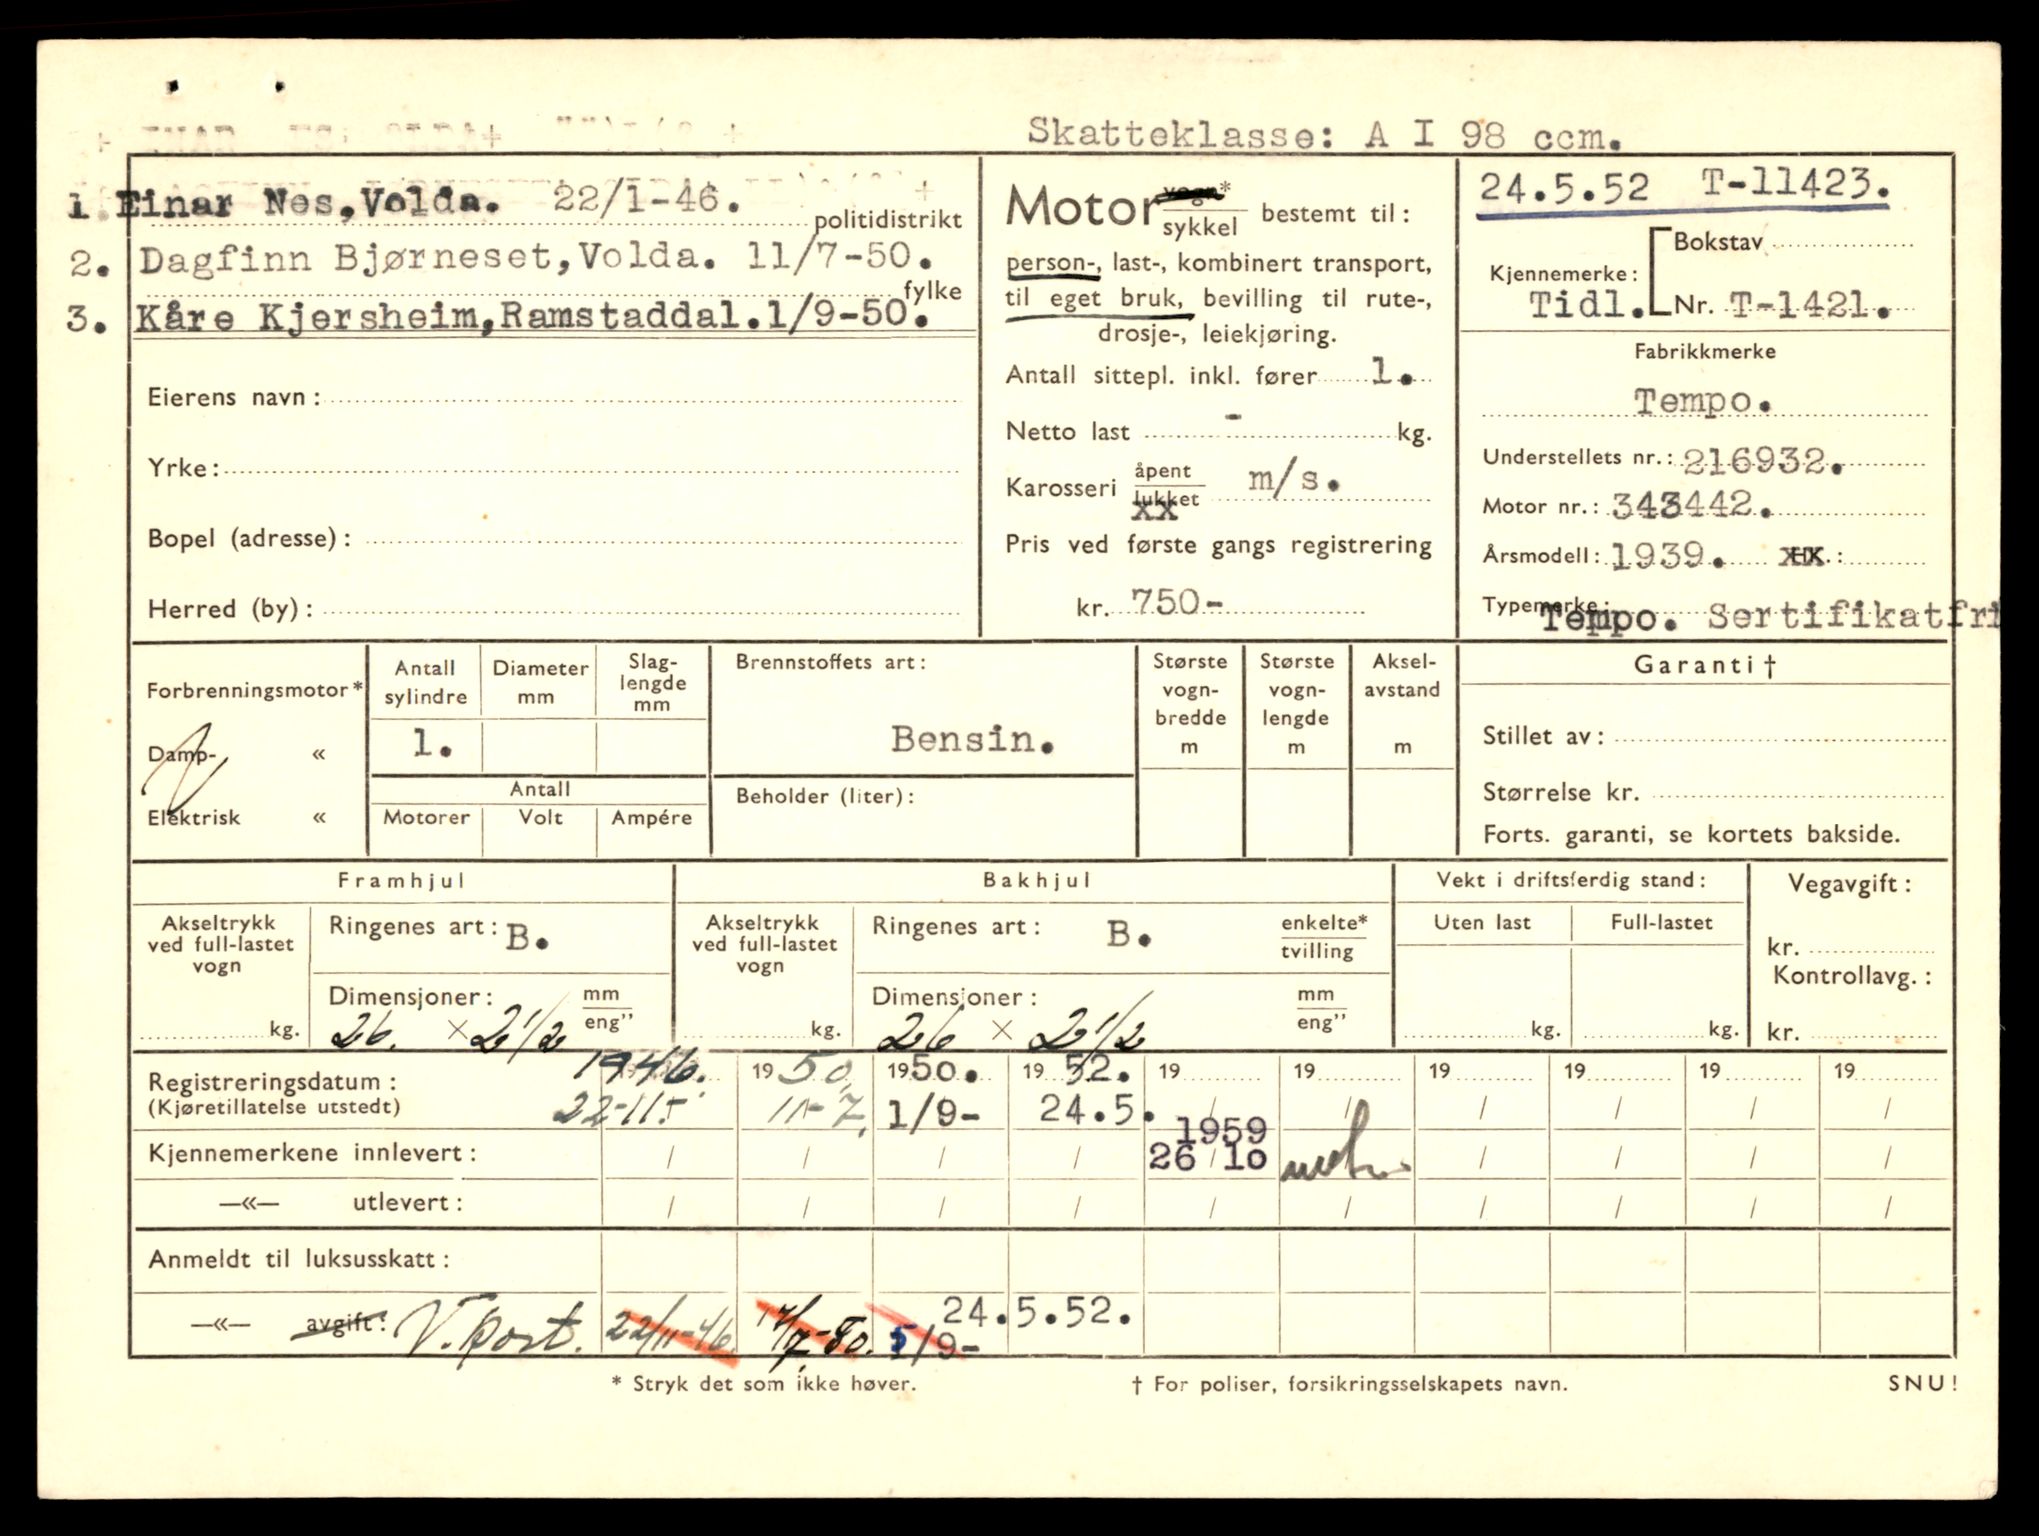 Skatteklasse: A I 98 ccm.
1. Einar Nes, Volda. 22/1-46.
politidistrikt
2. Dagfinn Bjørneset, Volda. 11/7-50.
fylke
3. Kåre Kjersheim, Ramstaddal. 1/9-50.
Eierens navn:
Yrke:
Bopel (adresse):
Herred (by):
Motor vogn* / sykkel bestemt til:
person-, last-, kombinert transport,
til eget bruk, bevilling til rute-,
drosje-, leiekjøring.
Antall sittepl. inkl. fører 1.
Netto last - kg.
Karosseri åpent / lukket m/s.
Pris ved første gangs registrering
kr. 750-
24.5.52 T-11423.
Bokstav
Kjennemerke:
Tidl. Nr. T-1421.
Fabrikkmerke
Tempo.
Understellets nr.: 216932.
Motor nr.: 343442.
Årsmodell: 1939. HK.:
Typemerke:
Tempo. Sertifikatfri
Forbrenningsmotor*
Damp- «
Elektrisk «
Antall sylindre
Diameter mm
Slag-lengde mm
1.
Antall
Motorer Volt Ampére
Brennstoffets art:
Bensin.
Beholder (liter):
Største vogn-bredde m
Største vogn-lengde m
Aksel-avstand m
Garanti †
Stillet av:
Størrelse kr.
Forts. garanti, se kortets bakside.
Framhjul
Akseltrykk ved full-lastet vogn
kg.
Ringenes art: B.
Dimensjoner: mm / eng”
26. × 2 1/2
Bakhjul
Akseltrykk ved full-lastet vogn
kg.
Ringenes art: B. enkelte* / tvilling
Dimensjoner: mm / eng”
26 × 2 1/2
Vekt i driftsferdig stand:
Uten last Full-lastet
kg. kg.
Vegavgift:
kr.
Kontrollavg.:
kr.
Registreringsdatum: 1946. 1950. 1950. 1952. 19 19 19 19 19 19
(Kjøretillatelse utstedt) 22-11- 11-7. 1/9- 24.5. / / / / / /
1959
Kjennemerkene innlevert: / / / / 26/10 / / / / /
—«— utlevert: / / / / / / / / / /
Anmeldt til luksusskatt:
—«— avgift: V.kort. 22/11-46. 17/7-50. 5/9- 24.5.52.
* Stryk det som ikke høver.
† For poliser, forsikringsselskapets navn.
SNU!